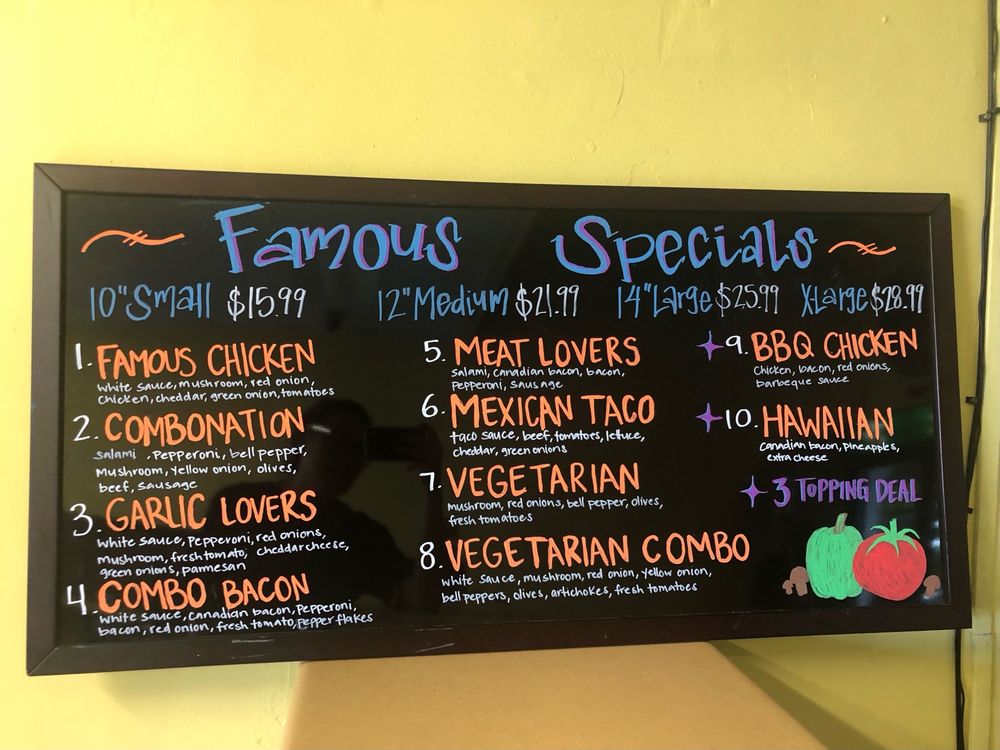 Famous Specials
10" Small $15.99 12" Medium $21.99 14" Large $25.99 XLarge $28.99
1. FAMOUS CHICKEN
white sauce, mushroom, red onion,
chicken, cheddar, green onion, tomatoes
2. COMBONATION
salami, Pepperoni, bell pepper,
mushroom, yellow onion, olives,
beef, sausage
3. GARLIC LOVERS
white sauce, Pepperoni, red onions,
mushroom, fresh tomato, cheddar cheese,
green onions, parmesan
4. COMBO BACON
white sauce, canadian bacon, Pepperoni,
bacon, red onion, fresh tomato, Pepper flakes
5. MEAT LOVERS
salami, canadian bacon, bacon,
Pepperoni, sausage
6. MEXICAN TACO
taco sauce, beef, tomatoes, lettuce,
cheddar, green onions
7. VEGETARIAN
mushroom, red onions, bell pepper, olives,
fresh tomatoes
8. VEGETARIAN COMBO
white sauce, mushroom, red onion, yellow onion,
bell peppers, olives, artichokes, fresh tomatoes
9. BBQ CHICKEN
chicken, bacon, red onions,
barbeque sauce
10. HAWAIIAN
canadian bacon, pineapples,
extra cheese
3 TOPPING DEAL